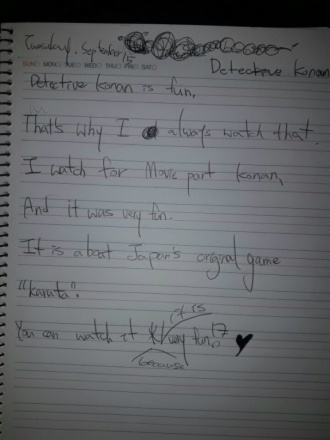 Tuesday. September 15
SUNO MONO TUEO WEDO THUO FRIO SATO
Detective Konan
Detective Konan is fun.
That's why I always watch that.
I watch for Movie part Konan,
And it was very fun.
It is about Japan's original game
"karuta".
it is
You can watch it very fun.
because